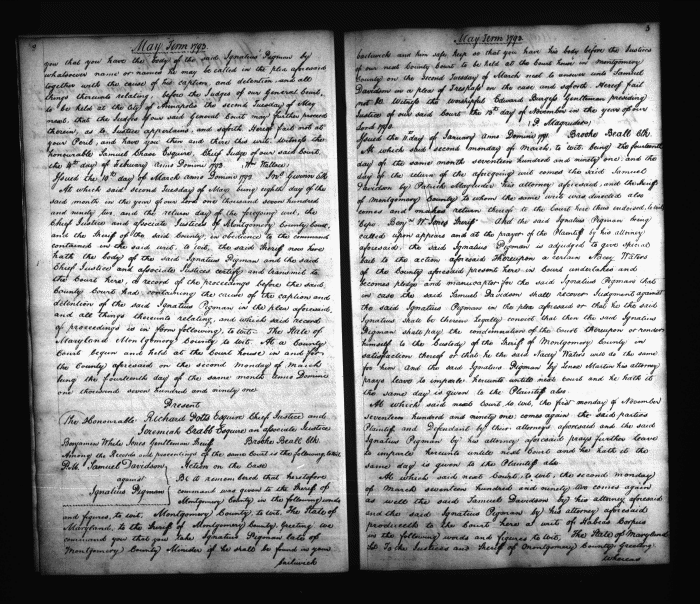 2
May Term 1793.
you that you have the body of the said Ignatius Pigman by
whatsoever name or names he may be called in the plea aforesaid
together with the cause of his caption and detention and all
things thereunto relating, before the Judges of our General Court,
to be held at the City of Annapolis the second Tuesday of May
next, that the Judges of our said General Court may further proceed
therein, as to Justice appertains, and soforth. Hereof fail not at
your Peril, and have you then and there this writ. Witness the
honourable Samuel Chase Esquire, Chief Judge of our said Court,
the day of February Anno Domini 1793. Wallace.
Issued the 10th day of March anno Domini 1792 Jno. Gwinn Clk
At which said second Tuesday of May being eighth day of the
said month in the year of our Lord one thousand seven hundred
and ninety two, and the return day of the foregoing writ, the
Chief Justice and associate Justices of Montgomery County Court,
and the Sheriff of the said County, in obedience to the command
contained in the said writ, to wit, the said Sheriff now here
hath the body of the said Ignatius Pigman and the said
Chief Justice and associate Justices certify and transmit to
the Court here, a record of the proceedings before the said
County Court had, containing the cause of the caption and
detention of the said Ignatius Pigman in the plea aforesaid,
and all things thereunto relating and which said record
of proceedings is in form following, to wit. The State of
Maryland Montgomery County to wit. At a County
Court begun and held at the Court house in and for
the County aforesaid on the second Monday of March
being the fourteenth day of the same month Anno Domini
one thousand seven hundred and ninety one.
Present
The Honourable Richard Potts Esquire Chief Justice and
Jeremiah Crabb Esquire an associate Justice
Benjamin White Jones Gentleman Sheriff Brooke Beall Clk.
Among the Records and proceedings of the same Court is the following to wit
Samuel Davidson Action on the Case
against Be it remembered that heretofore
Ignatius Pigman command was given to the Sheriff of
Montgomery County in the following words
and figures, to wit. Montgomery County, to wit. The State of
Maryland, to the Sheriff of Montgomery County, Greeting, we
command you that you take Ignatius Pigman late of
Montgomery County if he shall be found in your
bailiwick
3
May Term 1793.
bailiwick and him safe keep so that you have his body before the Justices
of our next County Court to be held at the Court house in Montgomery
County on the second Tuesday of March next to answer unto Samuel
Davidson in a plea of Trespass on the case and soforth Hereof fail
not &c Witness the worshipful Edward Burgess Gentleman presiding
Justice of our said Court the day of November in the year of our
Lord 1790. P Magruder.
Issued the day of January Anno Domini 1791 Brooke Beall Clk
At which said second monday of March, to wit, being the fourteenth
day of the same month seventeen hundred and ninety one and the
day of the return of the aforegoing writ comes the said Samuel
Davidson by Patrick Magruder his attorney aforesaid, and the Sheriff
of montgomery County to whom the same writ was directed also
comes and makes return thereof to the Court here thus endorsed, to wit,
Cepi Benj. W. Jones Sheriff - And the said Ignatius Pigman being
called upon appears and at the prayer of the Plaintiff by his attorney
aforesaid the said Ignatius Pigman is adjudged to give special
bail to the action aforesaid Thereupon a certain Waters
of the County aforesaid present here in Court undertakes and
becomes pledge and manucaptor for the said Ignatius Pigman that
in case the said Samuel Davidson shall recover Judgment against
the said Ignatius Pigman in the plea aforesaid or that he the said
Ignatius shall be therein legally convict that then the said Ignatius
Pigman shall pay the condemnation of the Court thereupon or render
himself to the Custody of the Sheriff of Montgomery County in
satisfaction thereof or that he the said Waters will do the same
for him And the said Ignatius Pigman by Martin his attorney
prays leave to imparle hereunto untill next court and he hath it
the same day is given to the Plaintiff also.
At which said next Court, to wit, the first monday of November
seventeen hundred and ninety one comes again the said parties
Plaintiff and Defendant by their attorneys aforesaid and the said
Ignatius Pigman by his attorney aforesaid prays further leave
to imparle hereunto untill next Court and he hath it the
same day is given to the Plaintiff also
At which said next Court, to wit, the second monday
of March seventeen hundred and ninety two comes again
as well the said Samuel Davidson by his attorney aforesaid
and the said Ignatius Pigman by his attorney aforesaid
produceth to the Court here a writ of Habeas Corpus
in the following words and figures to wit, The State of Maryland
To the Justices and Sheriff of Montgomery County Greeting
Whereas